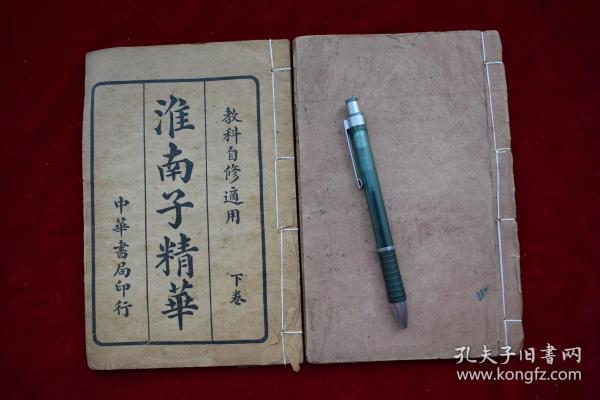 教科自修適用
下卷
淮南子精華
中華書局印行
孔夫子旧書网
www.kongfz.com